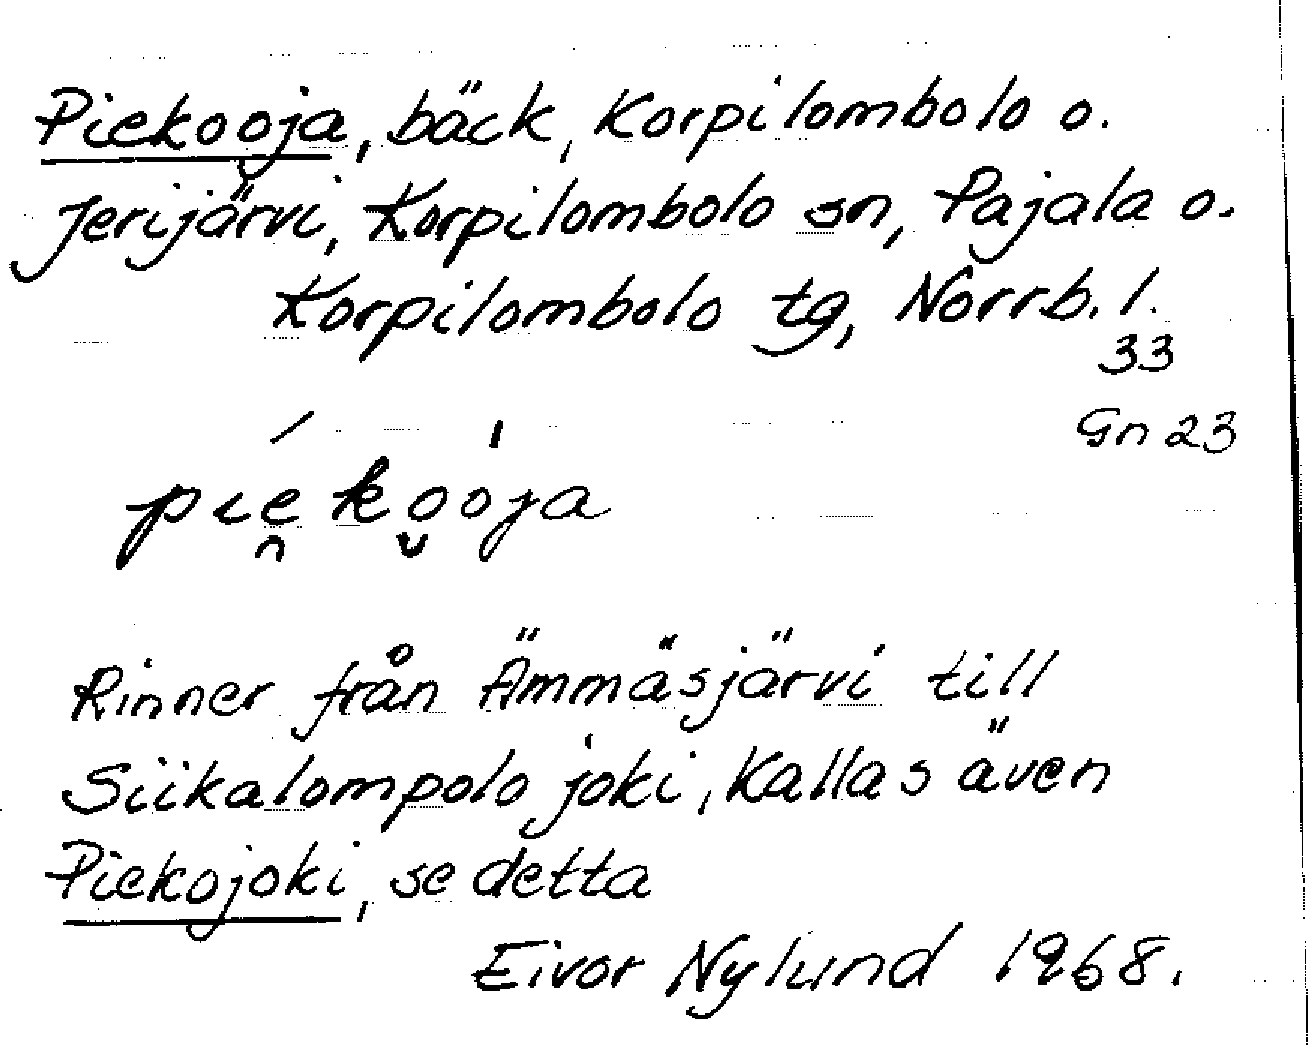 Piekooja, bäck, Korpilombolo o.
Jerijärvi, Korpilombolo sn, Pajala o.
Korpilombolo tg, Norrb. l.
33
Gn 23
pı̯ekoȯja
Rinner från Ämmäsjärvi till
Siikalompolo joki, Kallas även
Piekojoki, se detta
Eivor Nylund 1968.